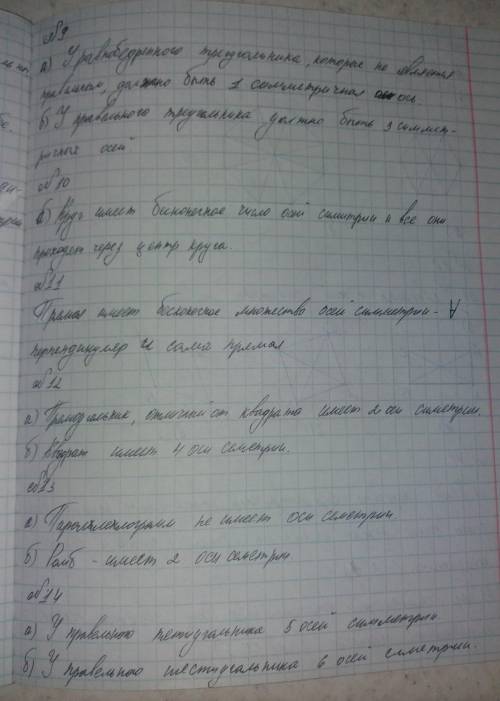 №9
а) У равнобедренного треугольника, которые не является
правилом, должно быть 1 симметричная ось
б) У правельного треугольника должно быть 3 симмет-
ричных осей
№10
б) Круг имеет бесконечное число осей симитрии и все они
проходят через центр круга.
№11
Прямая имеет бесконесное множество осей симметрии - ∀
перпендикуляр и сама прямая
№12
а) Прямоугольник, отличный от квадрата имеет 2 оси симетрии.
б) Квадрат имеет 4 оси семетрии.
№13
а) Параллелограмм не имеет оси семетрии
б) Ромб - имеет 2 оси семетрии
№14
а) У правельного петиугольника 5 осей симметрии.
б) У правельного шестиугольника 6 осей симетрии.